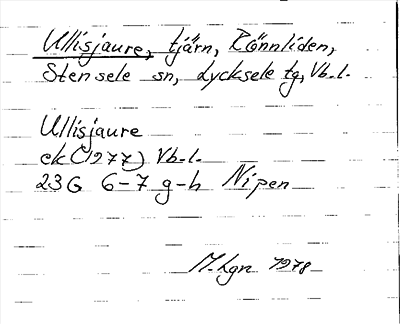 Ullisjaure, tjärn, Rönnliden,
Stensele sn, Lycksele tg, Vb.l.
Ullisjaure
ek (1277) Vb.l.
23G 6-7 g-h Nipen
M.Lgn 1978